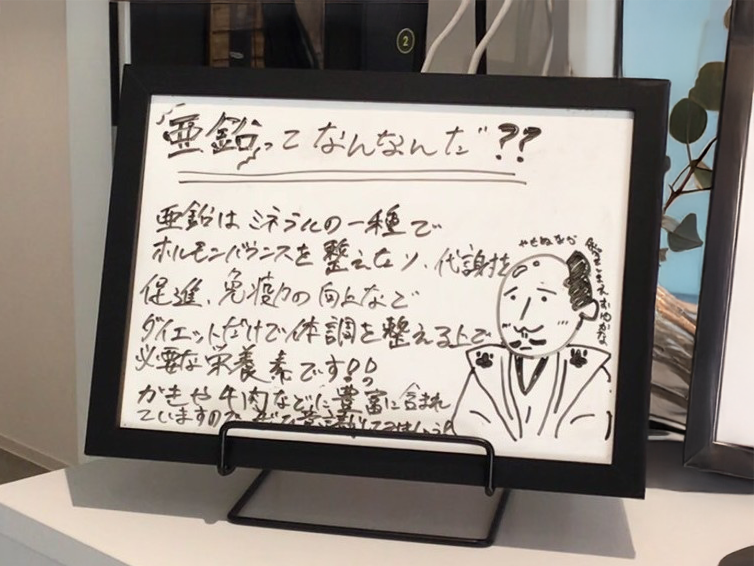 ②
亜鉛ってなんなんだ??
亜鉛はミネラルの一種で
ホルモンバランスを整えたり、代謝を
促進、免疫力の向上などで
ダイエットだけで体調を整える上で
必要な栄養素です!!
かきや牛肉などに豊富に含まれ
ていますので
やせぬなら